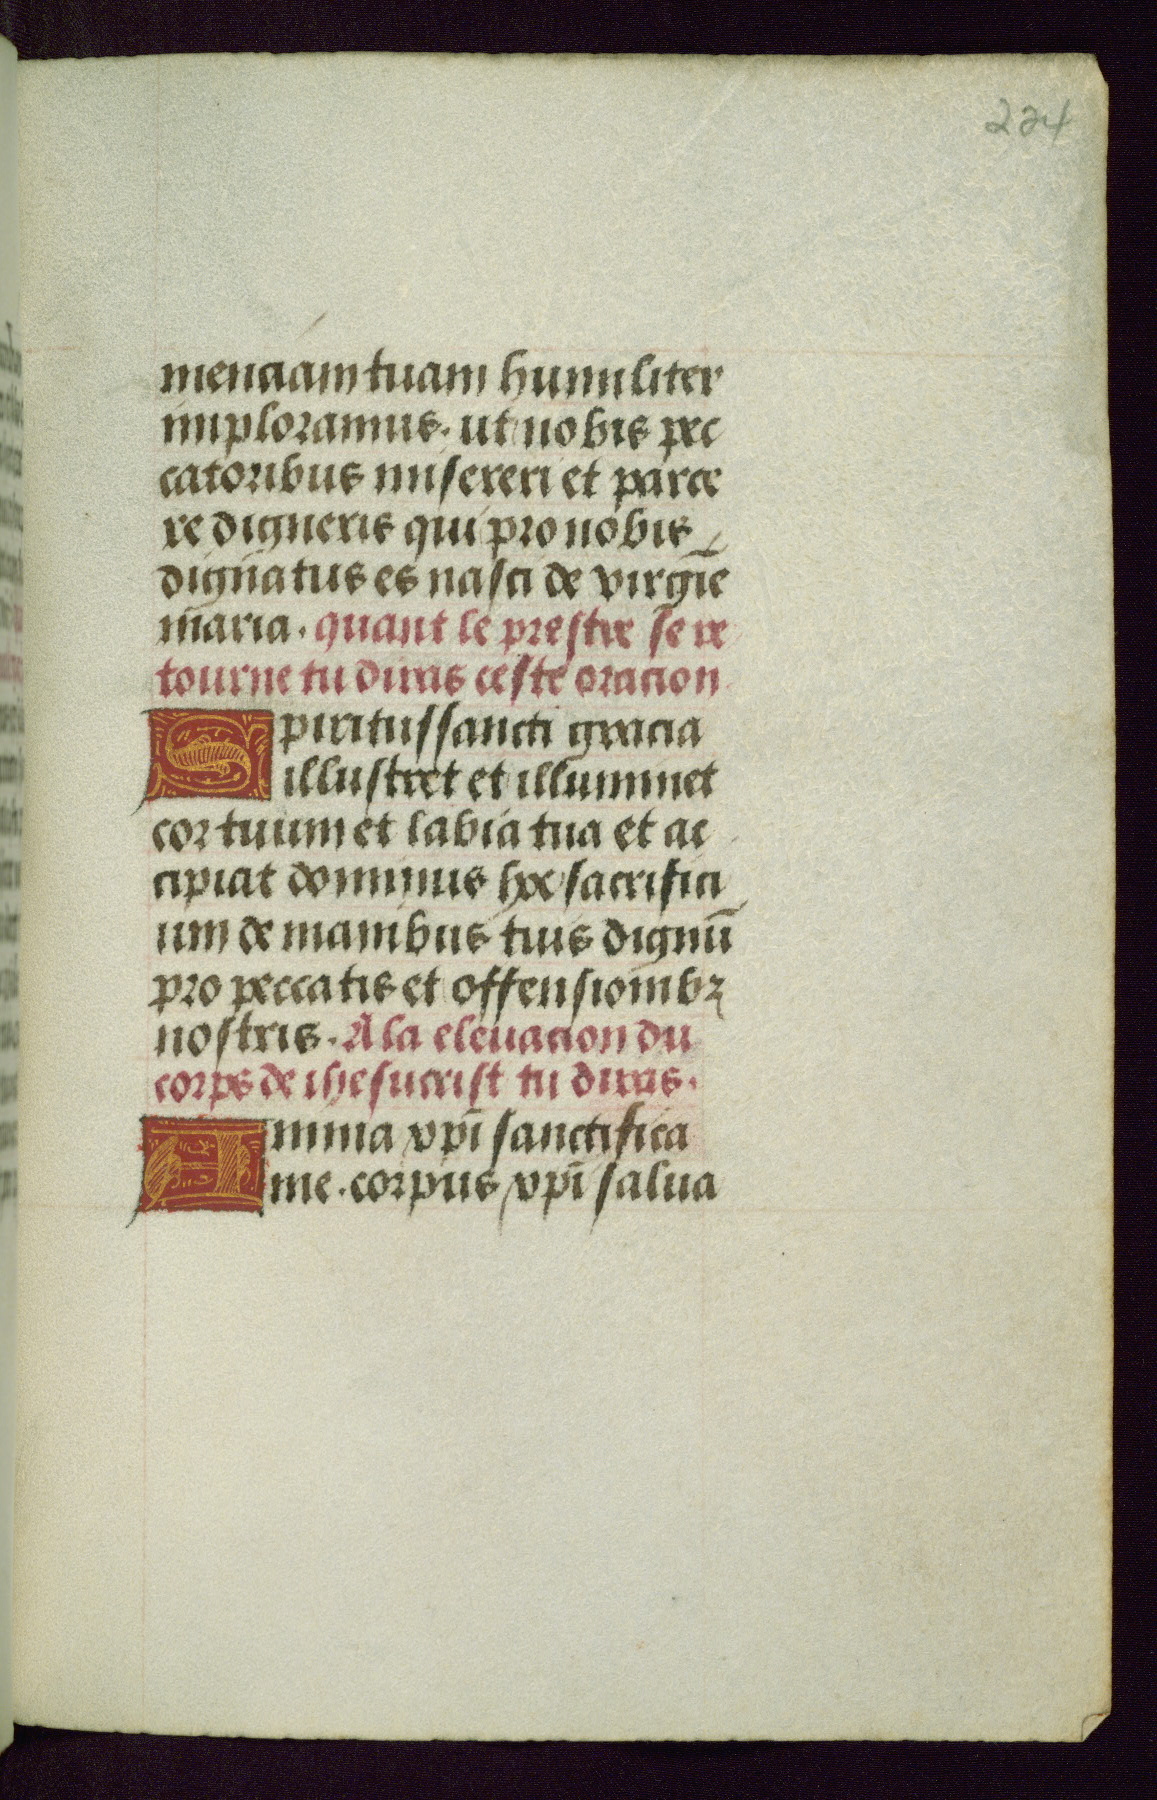 224
menciam tuam humiliter
imploramus. ut nobis pec
catoribus misereri et parce
re digneris qui pro nobis
dignatus es nasci de virgīe
maria. quant le prestre se re
tourne tu diras ceste oracion
Spiritus sancti gracia
illustret et illuminet
cor tuum et labia tua et ac
cipiat dominus hoc sacrifici
um de manibus tuis dignū
pro peccatis et offensionibꝫ
nostris. A la eleuacion du
corps de ihesucrist tu diras.
Anima xp̄i sanctifica
me. corpus xp̄i salua